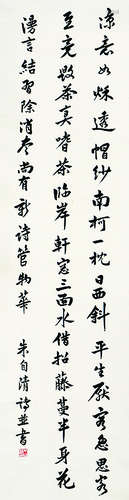 凉意如秋透帽纱南柯一枕日西斜平生厌客急思客
至竟毁茶莫嗜茶临岸轩窗三面水借拈藤蔓半身花
语言结习除消尽尚有新诗管物华
朱自清诗并书